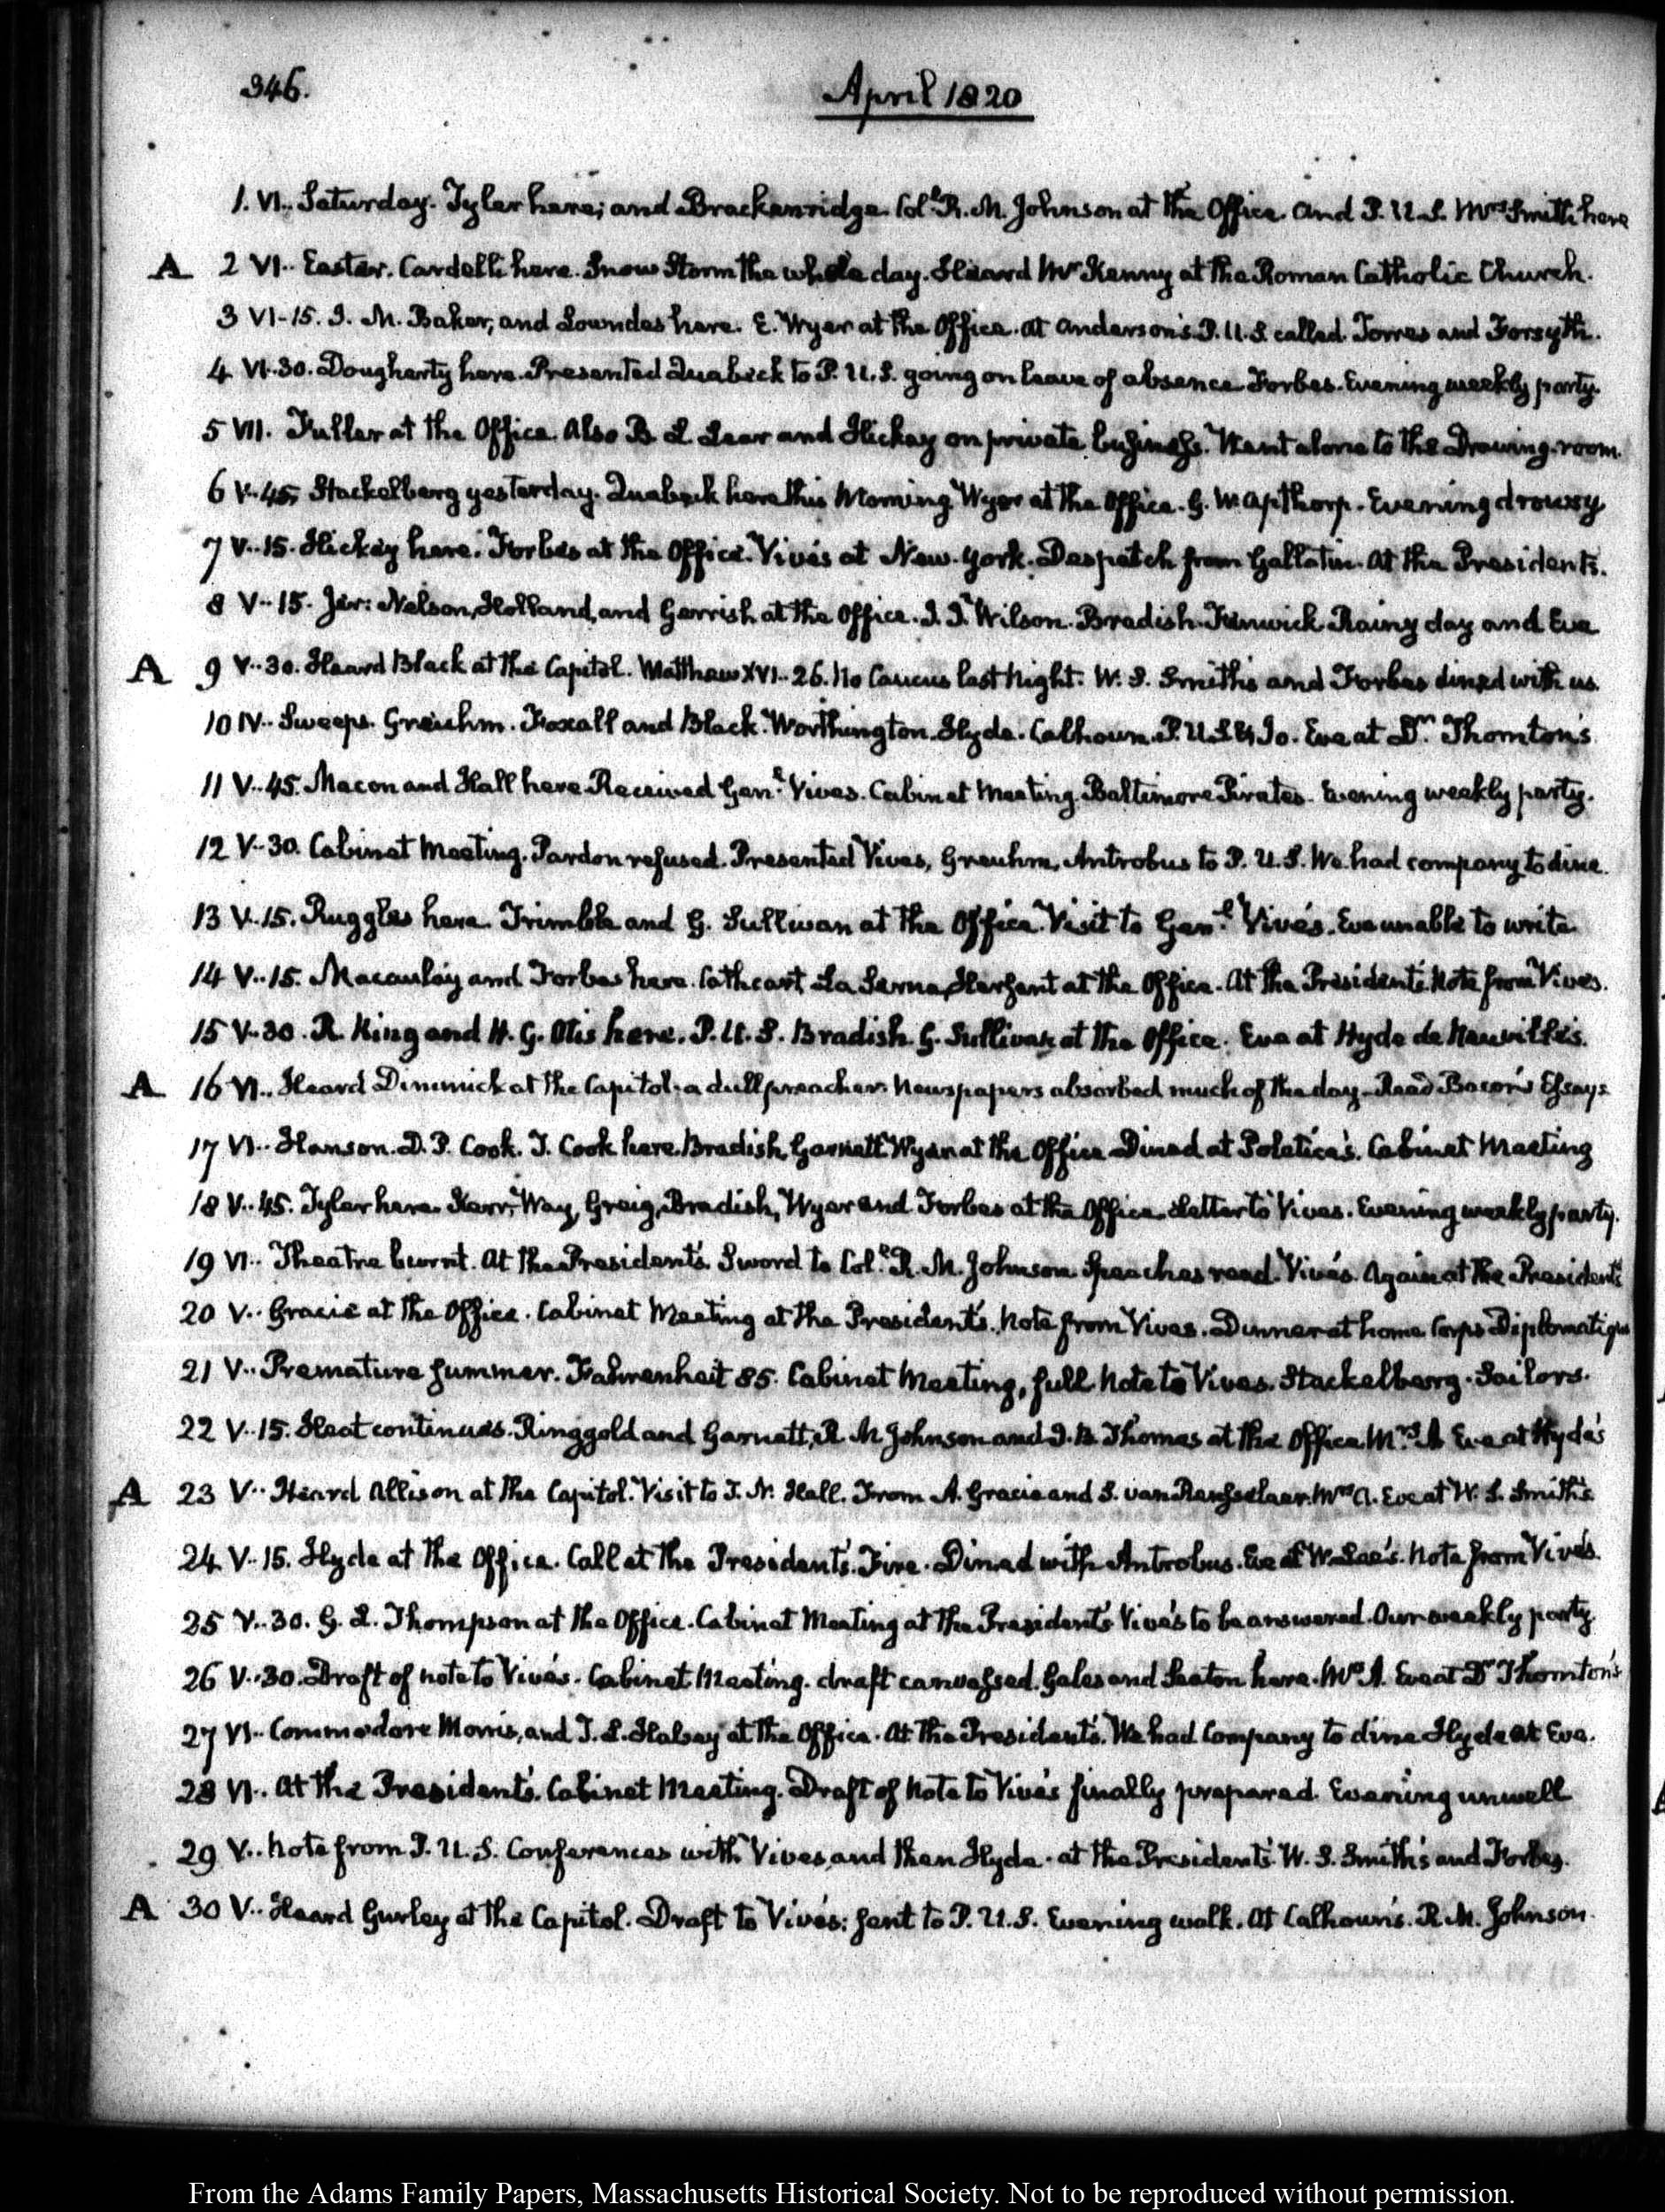 346.
April 1820
1. VI.. Saturday. Tyler here; and Brackenridge. Coll. R. M. Johnson at the Office. and P. U. S. Mrs Smith here
A 2 VI.. Easter. Cardelli here. Snow Storm the whole day. Heard Mr Kenny at the Roman Catholic Church.
3 VI-15. I. M. Baker, and Lowndes here. E. Wyer at the Office. at Anderson's. P. U. S. called. Torres and Forsyth.
4 VI.30. Dougherty here. Presented Quabeck to P. U. S. going on leave of absence. Forbes. Evening weekly party.
5 VII. Fuller at the Office. Also B. L. Lear and Hickey on private business. Went alone to the Drawing-room.
6 V..45. Stackelberg yesterday. Quabeck here this Morning. Wyer at the Office. G. W. Apthorp. Evening drowsy
7 V..15. Hickey here. Forbes at the Office. Vivés at New-York. Despatch from Gallatin. At the President's.
8 V..15. Jer: Nelson, Holland, and Gerrish at the Office. J. J. Wilson. Bradish. Fenwick. Rainy day and Eve
A 9 V..30. Heard Black at the Capitol. Matthew XVI..26. No Caucus last Night. W. S. Smith's and Forbes dined with us.
10 IV.. Sweeps. Greuhm. Foxall and Black. Worthington. Hyde. Calhoun. P. U. S. Eve at Dr. Thornton's
11 V..45. Macon and Hall here. Received Genl. Vives. Cabinet Meeting. Baltimore Pirates. Evening weekly party.
12 V..30. Cabinet Meeting. Pardon refused. Presented Vives, Greuhm, Antrobus to P. U. S. We had company to dine.
13 V..15. Ruggles here. Trimble and G. Sullivan at the Office. Visit to Genl. Vivés. Eve unable to write.
14 V..15. Macaulay and Forbes here. Cathcart, La Serna, at the Office. At the President's. Note from Vives.
15 V..30. R. King and H. G. Otis here. P. U. S. Bradish. G. Sullivan at the Office. Eve at Hyde de Neuville's.
A 16 VI.. Heard Dimmick at the Capitol. a dull preacher. Newspapers absorbed much of the day. Read Bacon's Essays
17 VI.. Hanson. D. P. Cook. J. Cook here. Bradish, Garnett, Wyer at the Office. Dined at Poletica's. Cabinet Meeting
18 V..45. Tyler here. Kerr, Way, Greig, Bradish, Wyer and Forbes at the Office. Letter to Vives. Evening weekly party.
19 VI.. Theatre burnt. At the President's. Sword to Coll. R. M. Johnson. Speeches read. Vivés. Again at the President's
20 V.. Gracie at the Office. Cabinet Meeting at the President's. Note from Vives. Dinner at home. Corps Diplomatique
21 V.. Premature summer. Fahrenheit 85. Cabinet Meeting, full. Note to Vives. Stackelberg. Sailors.
22 V..15. Heat continues. Ringgold and Garnett, R. M. Johnson and J. B. Thomas at the Office. Mrs. A. Eve at Hyde's
A 23 V.. Heard Allison at the Capitol. Visit to J. N. Hall. From A. Gracie and S. van Rensselaer. Mrs A. Eve at W. S. Smith's
24 V..15. Hyde at the Office. Call at the President's. Fire. Dined with Antrobus. Eve at W. Lee's. Note from Vivés.
25 V..30. G. L. Thompson at the Office. Cabinet Meeting at the President's Vivés to be answered. Our weekly party
26 V..30. Draft of note to Vivés. Cabinet Meeting. draft canvassed. Gales and Seaton here. Mrs A. Eve at Dr Thornton's
27 VI.. Commodore Morris, and T. L. Halsey at the Office. At the President's. We had Company to dine. Hyde at Eve.
28 VI.. At the President's. Cabinet Meeting. Draft of Note to Vivés finally prepared. Evening unwell
29 V.. Note from P. U. S. Conferences with Vives and then Hyde. at the President's. W. S. Smith's and Forbes.
A 30 V.. Heard Gurley at the Capitol. Draft to Vivés: sent to P. U. S. Evening walk. At Calhoun's. R. M. Johnson.
From the Adams Family Papers, Massachusetts Historical Society. Not to be reproduced without permission.